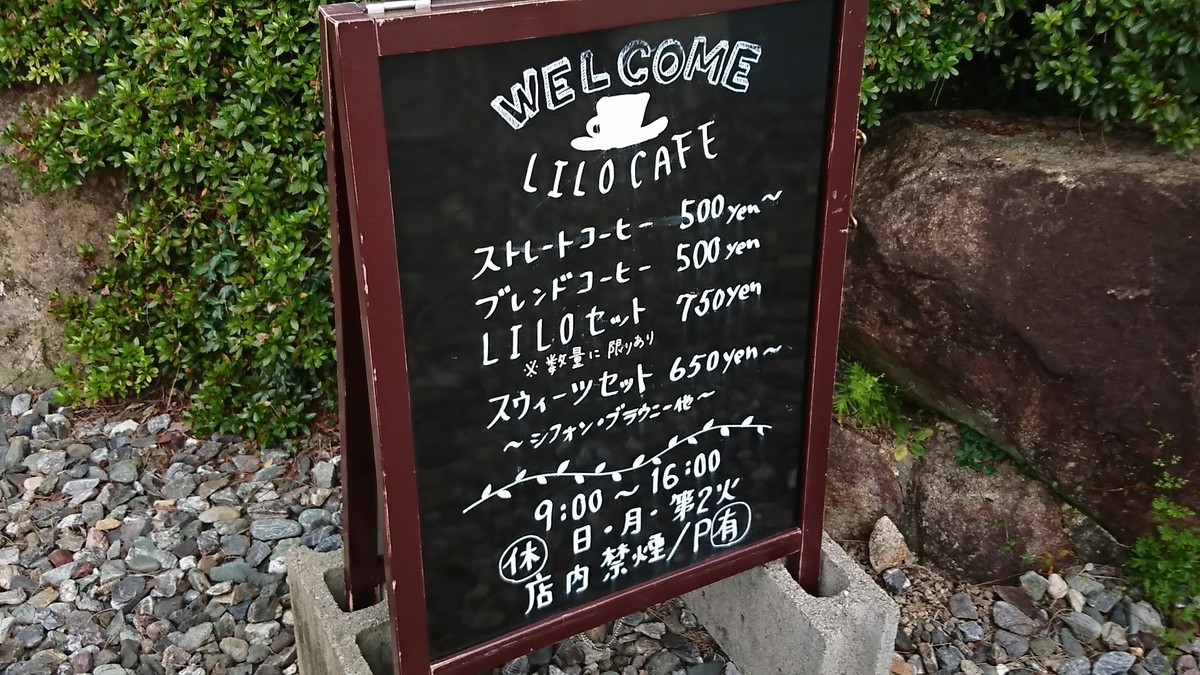 WELCOME
LILO CAFE
ストレートコーヒー 500yen~
ブレンドコーヒー 500yen
LILOセット 750yen
※数量に限りあり
スウィーツセット 650yen~
~シフォン・ブラウニー他~
9:00~16:00
休 日・月・第2火
店内禁煙/P有